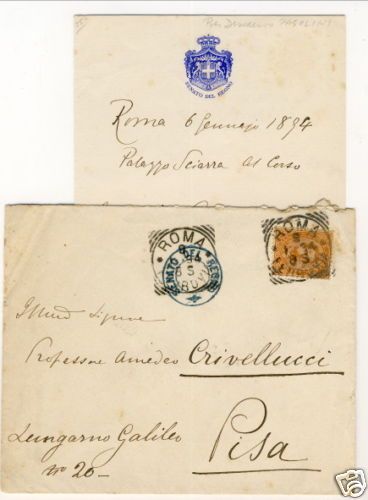 Pier Desiderio PASOLINI
SENATO DEL REGNO
Roma 6 Gennajo 1894
Palazzo Sciarra al Corso
ROMA
SENATO DEL REGNO
ROMA
Illmo Signore
Professore Amedeo Crivellucci
Lungarno Galileo
No 20 -
Pisa
ebY